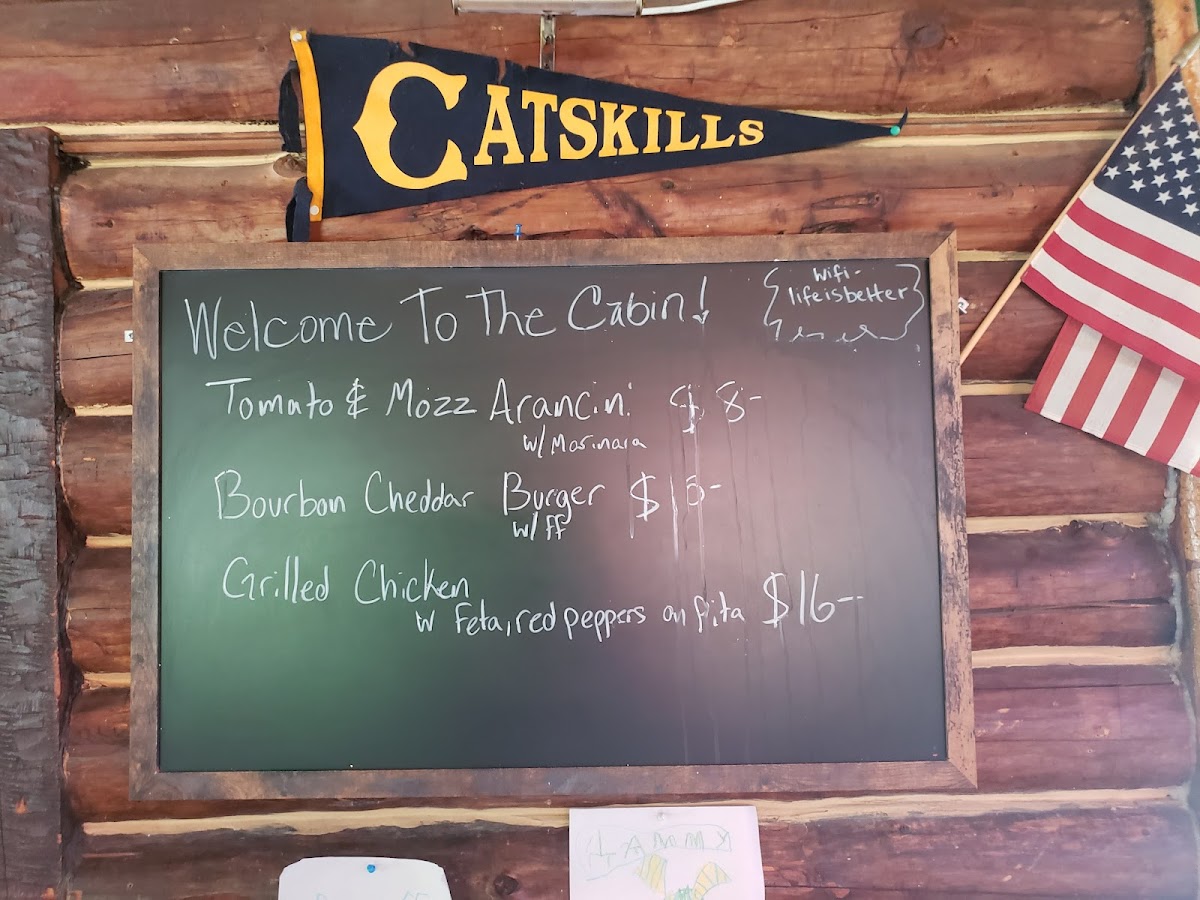 CATSKILLS
Welcome To The Cabin!
wifi-
lifeisbetter
Tomato & Mozz Arancini $8-
w/ Marinara
Bourbon Cheddar Burger
w/ ff
Grilled Chicken
w Feta, red peppers on pita $16--